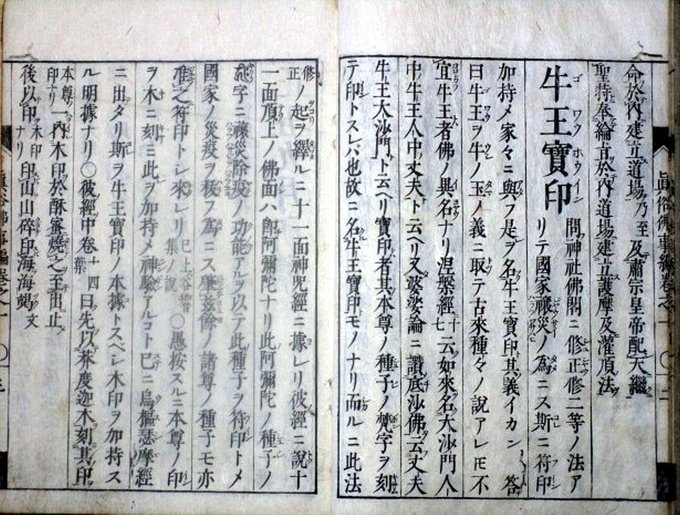 命於內建立道場乃至及肅宗皇帝配天繼
聖特奉綸旨於內道場建立護摩及灌頂法
牛王寶印
ゴワウホウイン
問神社佛閣ニ修正修二等ノ法ア
リテ國家禳災ノ爲ニス斯ニ符印
加持メ家々ニ與フ是ヲ名牛王寶印其義イカン 答
曰牛王ヲ牛ノ玉ノ義ニ取テ古來種々ノ說アレ𪜈不
宜牛王者佛ノ異名ナリ涅槃經十云如來名大沙門人
中牛王人中丈夫ト云ヘリ又婆娑論ニ讚底沙佛云丈夫
牛王大沙門ト云ヘリ寶印者其本尊ノ種子ノ梵字ヲ刻
テ印トスレバ也故ニ名牛王寶印モノナリ而ルニ此法
眞俗佛事編卷之一
修正ノ起ヲ繹ルニ十一面神咒經ニ據レリ彼經ニ說十
一面頂上ノ佛面ハ即阿彌陀ナリ此阿彌陀ノ種子ノ
字ニ禳災除疫ノ功能アルヲ以テ此種子ヲ符印トメ
國家ノ災疫ヲ穰フ爲ニス準兹餘ノ諸尊ノ種子モ亦
准之符印トシ來レリ 已上谷響集ノ說 〇愚按スルニ本尊ノ印
ヲ木ニ刻ミ此ヲ加持メ神驗アルコト已ニ烏樞瑟摩經
ニ出タリ斯ヲ牛王寶印ノ本據トスベシ木印ヲ加持ス
ル明據ナリ〇彼經中卷十四葉曰先以芥度迦木刻其印
本尊ノ印ナリ內木印於酥蜜燒之至出止
後以印木印ナリ印山山碎印海海竭文
眞俗佛事編卷之一